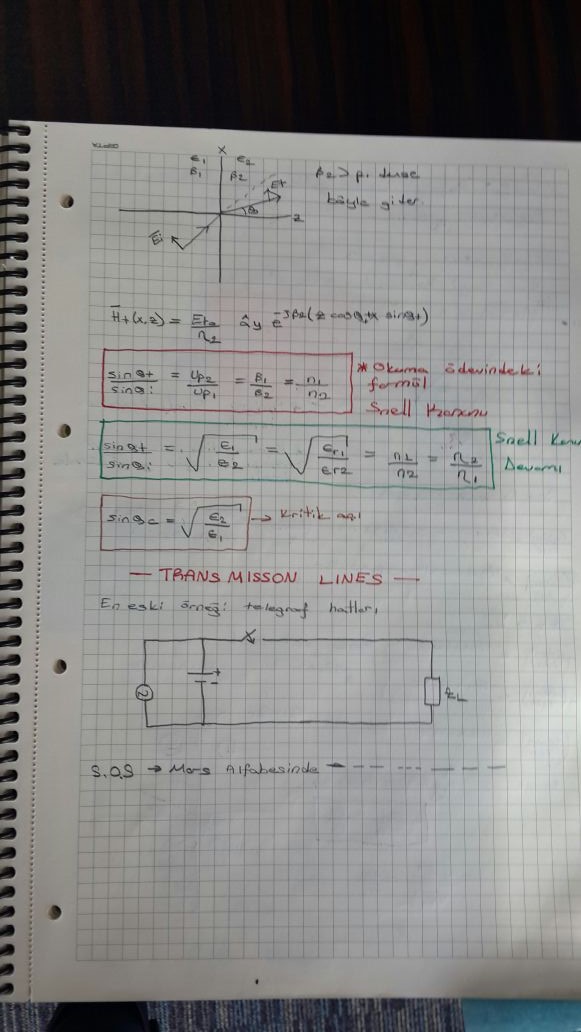 x
ε₁ ε₂
β₁ β₂
β₂ > β₁ durse
Et
böyle gider
θt
z
Ei
H̄t(x,z) = Et₀/η₂ ây e^-jβ₂(z cosθt+x sinθt)
sinθt/sinθi = up₂/up₁ = β₁/β₂ = n₁/n₂
* Okuma ödevindeki
formül
Snell Kanunu
sinθt/sinθi = √(ε₁/ε₂) = √(εr₁/εr₂) = n₁/n₂ = η₂/η₁
Snell Kanu
Devamı
sinθc = √(ε₂/ε₁) → Kritik açı
— TRANSMISSON LINES —
En eski örneği telegraf hatları
+
-
ZL
S.O.S → Mors Alfabesinde